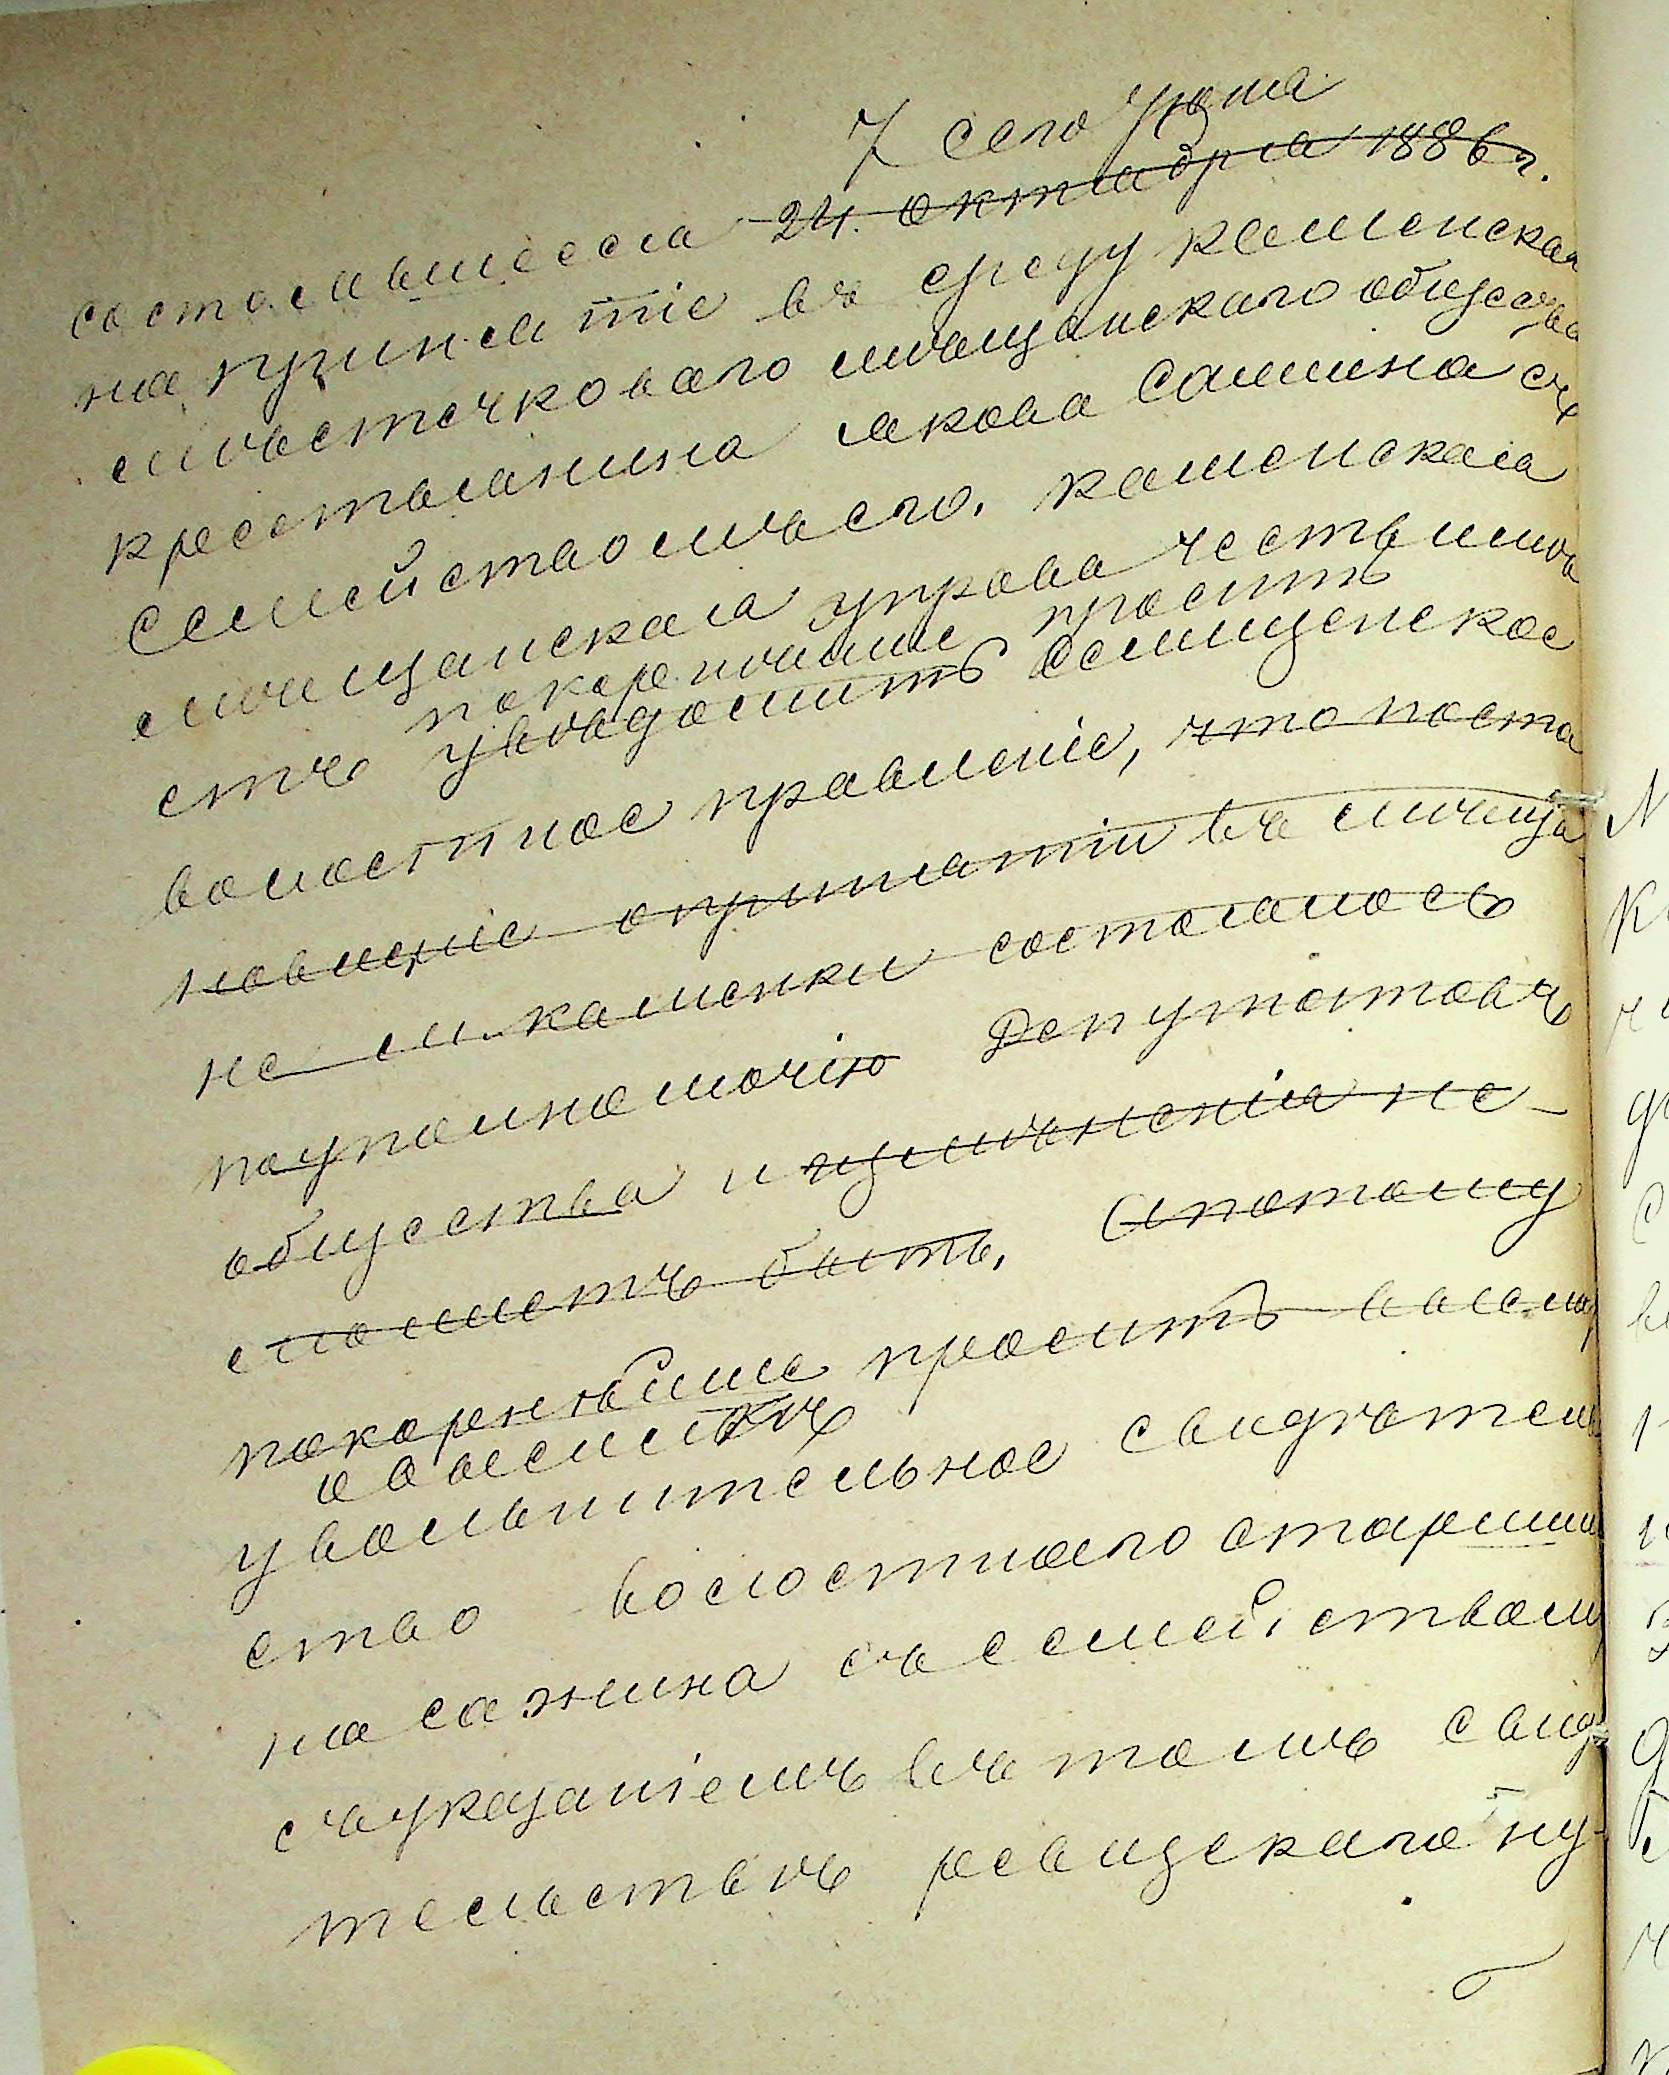 7 сего Юня
состоявшееся 24. октября 1886 г.
на принятіе въ среду каменскаго
мѣстечковаго мѣщанскаго общества
крестьянина якова Сашина съ
Семействомъ его. каменская
мѣщанская управа честь имѣ
покорнѣйше просить
етъ увѣдомить Семиценское
волостное правленіе, что поста
новленіе опринятіи въ мѣща
не м. каменки состоялось
поуполномочію Депутатовъ
общества и измѣненія не
можетъ быть. Апотому
покорнѣйше просить
увольнительное свидѣтель
ство волостнаго старшины
на сажина съ семействомъ
съуказаніемъ въ томъ свидѣ
тельствѣ ревизскаго ну